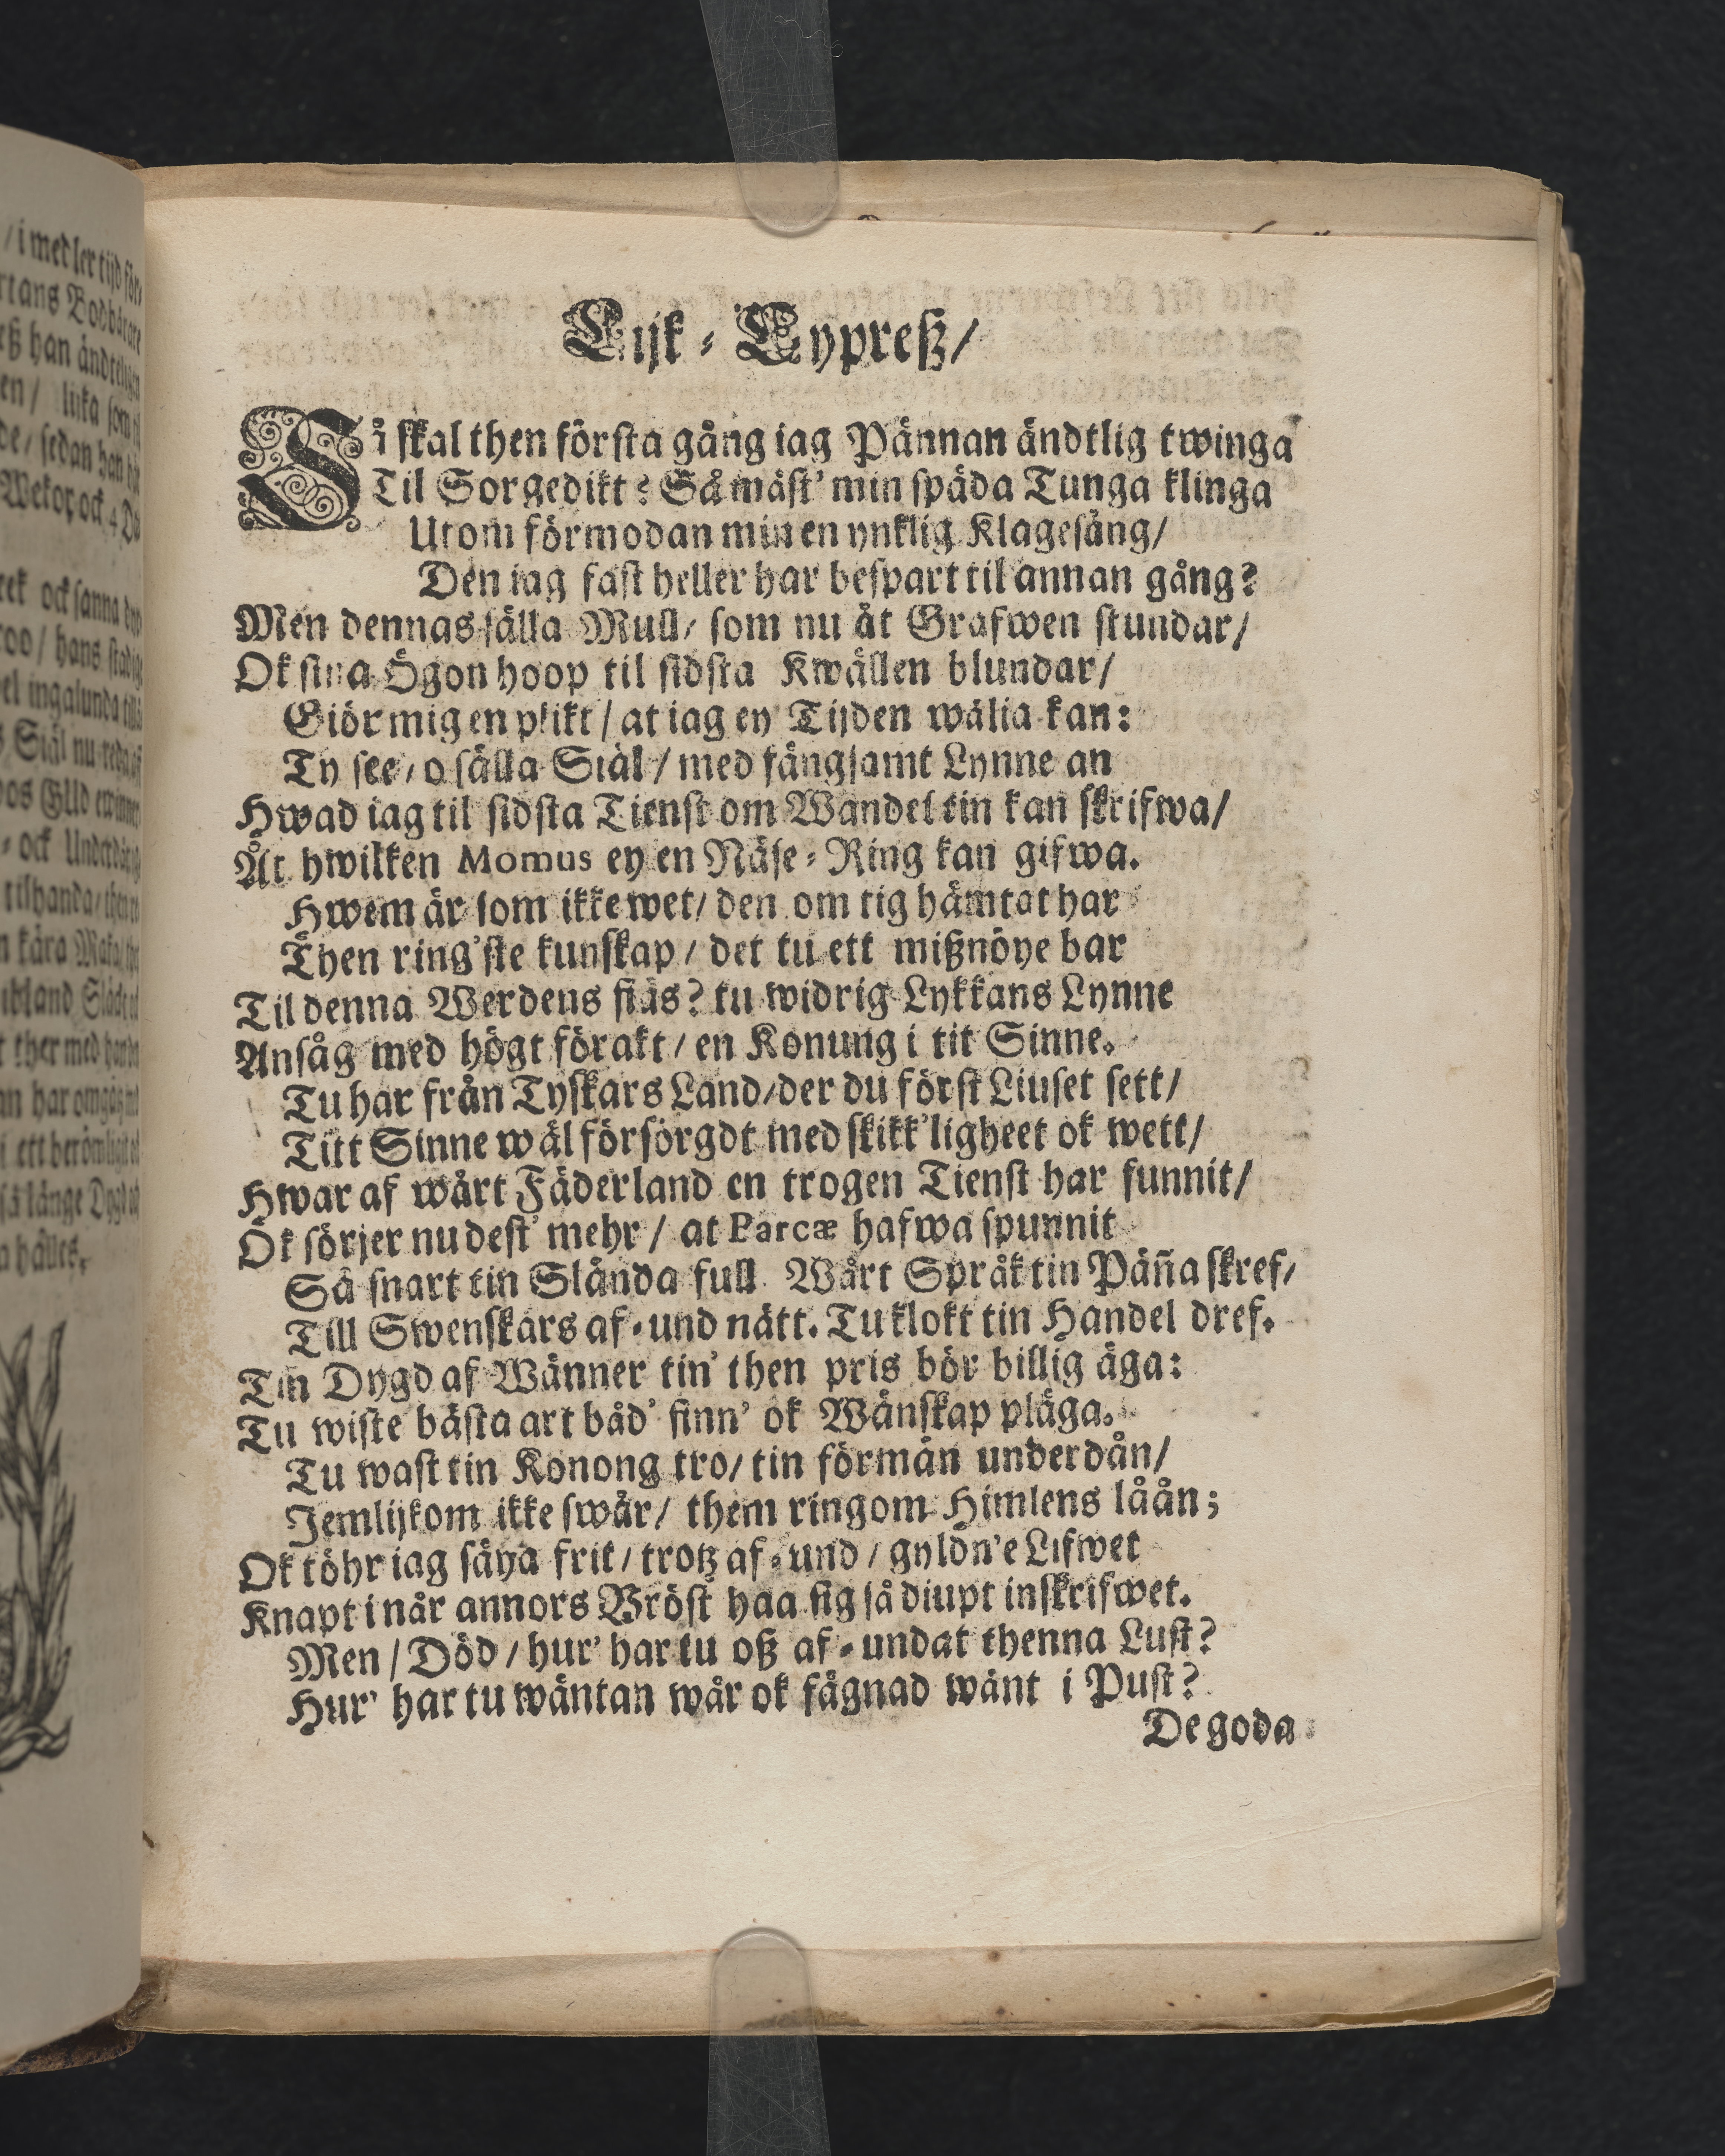 Lijk-Cypreß/
Så skal then första gång iag Pännan ändtlig twinga
Til Sorgedikt? Så måst' min späda Tunga klinga
Utom förmodan min en ynklig Klagesång/
Den iag fast heller har bespart til annan gång?
Men dennas sälla Mull/ som nu åt Grafwen stundar/
Ok sina Ögon hoop til sidsta Kwällen blundar/
Giör mig en plikt/ at iag ey Tijden wälia kan:
Ty see/ o sälla Siäl/ med fångsamt Lynne an
Hwad iag til sidsta Tienst om Wandel tin kan skrifwa/
Åt hwilken Momus ey en Näse-Ring kan gifwa.
Hwem är som ikke wet/ den om tig hämtat har
Then ring'ste kunskap/ det tu ett mißnöye bar
Til denna Werdens fiäs? tu widrig Lykkans Lynne
Ansåg med högt förakt/ en Konung i tit Sinne.
Tu har från Tyskars Land/ der du först Liuset sett/
Titt Sinne wäl försörgdt med skikk'ligheet ok wett/
Hwar af wårt Fäderland en trogen Tienst har funnit/
Ok sörjer nu dest' mehr/ at Parcæ hafwa spunnit
Så snart tin Slända full. Wårt Språk tin Päña skref/
Till Swenskars af-und nätt. Tu klokt tin Handel dref.
Tin Dygd af Wänner tin' then pris bör billig äga:
Tu wiste bästa art båd' finn' ok Wänskap pläga.
Tu wast tin Konong tro/ tin förmän underdån/
Jemlijkom ikke swår/ them ringom Himlens låån;
Ok töhr iag säya frit/ trotz af-und/ gyldn'e Lifwet
Knapt i når annors Bröst haa sig så diupt inskrifwet.
Men/ Död/ hur' har tu oß af-undat thenna Lust?
Hur' har tu wäntan wår ok fägnad wänt i Pust?
De goda